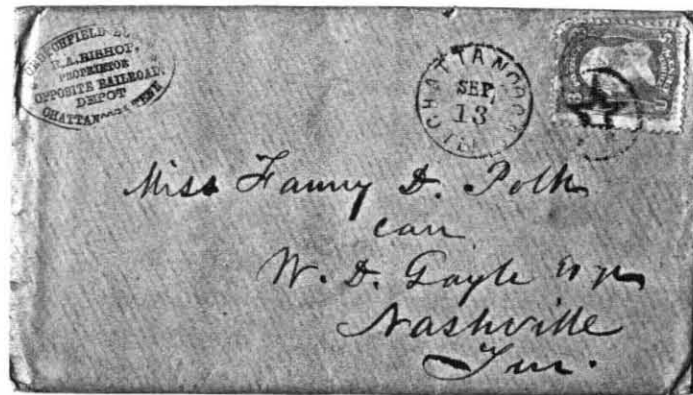 CRUTCHFIELD
R.A.BISHOP,
PROPRIETOR
OPPOSITE RAILROAD
DEPOT
CHATTANOOGA TENN
CHATTANOOGA
SEP
13
TEN
Miss Fanny D. Polk
care
W. D. Gayle Esqr
Nashville
Ten.